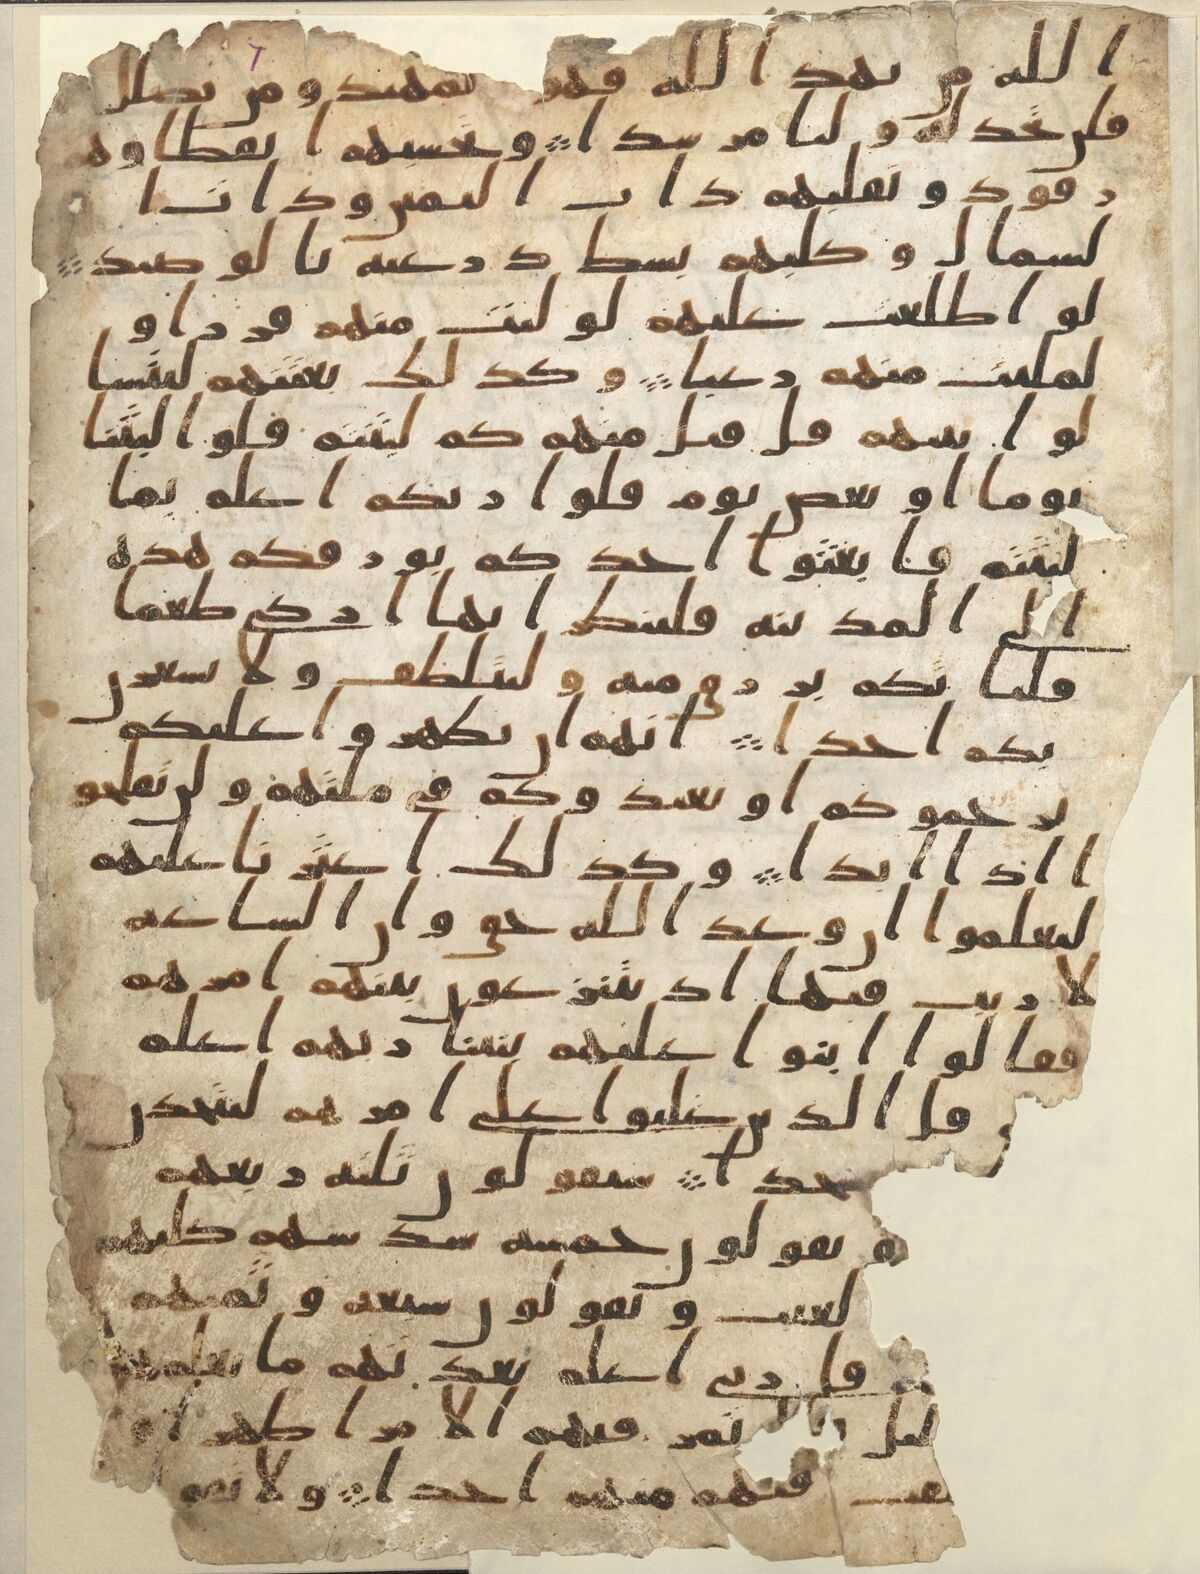 الله من يهد الله فهو المهتد ومن يضلل
فلن تجد له وليا مرشدا وتحسبهم ايقظا وهم
رقود ونقلبهم ذات اليمين وذات ا
لشمال وكلبهم بسط ذرعيه بالوصيد
لو اطلعت عليهم لوليت منهم فررا و
لملئت منهم رعبا وكذلك بعثنهم ليتسا
لوا بينهم قل قئل منهم كم لبثتم قلوا لبثنا
يوما او بعض يوم قلوا ربكم اعلم بما
لبثتم فابعثوا احدكم بورقكم هذه
الى المدينة فلينظر ايها ازكى طعما
فلياتكم برزق منه وليتلطف ولا يشعرن
بكم احدا انهم ان يظهروا عليكم
يرجموكم او يعيدوكم في ملتهم ولن تفلحو
ا اذا ابدا وكذلك اعثرنا عليهم
ليعلموا ان وعد الله حق وان الساعة
لا ريب فيها اذ يتنزعون بينهم امرهم
فقالوا ابنوا عليهم بنينا ربهم اعلم
قل الذين غلبوا على امرهم لنتخذن
جدا سيقولون ثلثة ربعهم
م يقولون خمسة سدسهم كلبهم
لغيب ويقولون سبعة وثمنهم
قل ربي اعلم بعدتهم ما يعلمهم
ليل تمر فيهم الا مرا ظهرا و
تفت فيهم منهم احدا ولا تقو